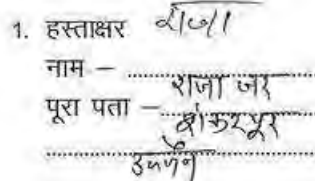 1. हस्ताक्षर राजा
नाम – राजा जर
पूरा पता – शंकरपुर
उज्जैन